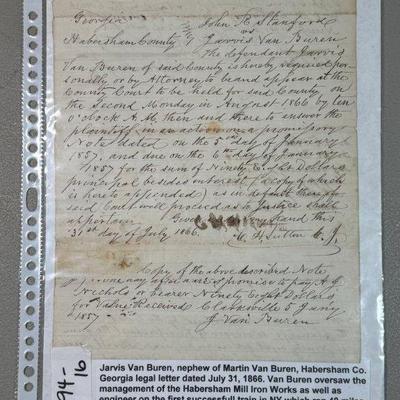 Georgia John R Stanford
vs
Habersham County Jarvis Van Buren
The defendant Jarvis
Van Buren of said County is hereby required per-
sonally or by Attorney to be and appear at the
County Court to be held for said County on
the Second Monday in August 1866 by ten
O'clock A.M. then and there to answer the
plaintiff in an action on a promissory
Note dated on the 5th day of January
1857, and due on the 6th day of January
1857 for the sum of Ninety Eight Dollars
principal besides interest (a copy of which
is hereto appended) as in default thereof
said Court will proceed as to Justice shall
appertain. Given under my hand this
31st day of July 1866. Sutton C. J.
Copy of the above described Note
one day after date I promise to pay
Nichols or bearer Ninety Eight Dollars
for Value Received Clarksville 5 Jany
1857 J. Van Buren
94-16
Jarvis Van Buren, nephew of Martin Van Buren, Habersham Co.
Georgia legal letter dated July 31, 1866. Van Buren oversaw the
management of the Habersham Mill Iron Works as well as
engineer on the first successfull train in NY which ran 40 miles